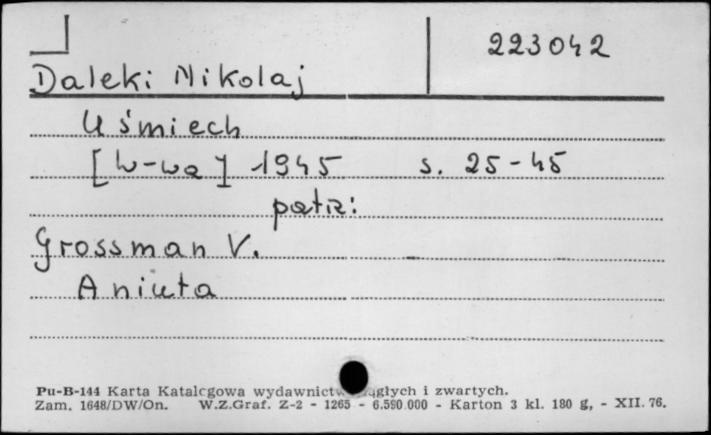 223042
Daleki Mikolaj
Uśmiech
[W-wa] 1945 s. 25-45
patrz:
Grossman V.
Aniuta
Pu-B-144 Karta Katalogowa wydawnictw ciągłych i zwartych.
Zam. 1648/DW/On. W.Z.Graf. Z-2 - 1265 - 6.590.000 - Karton 3 kl. 180 g, - XII. 76.